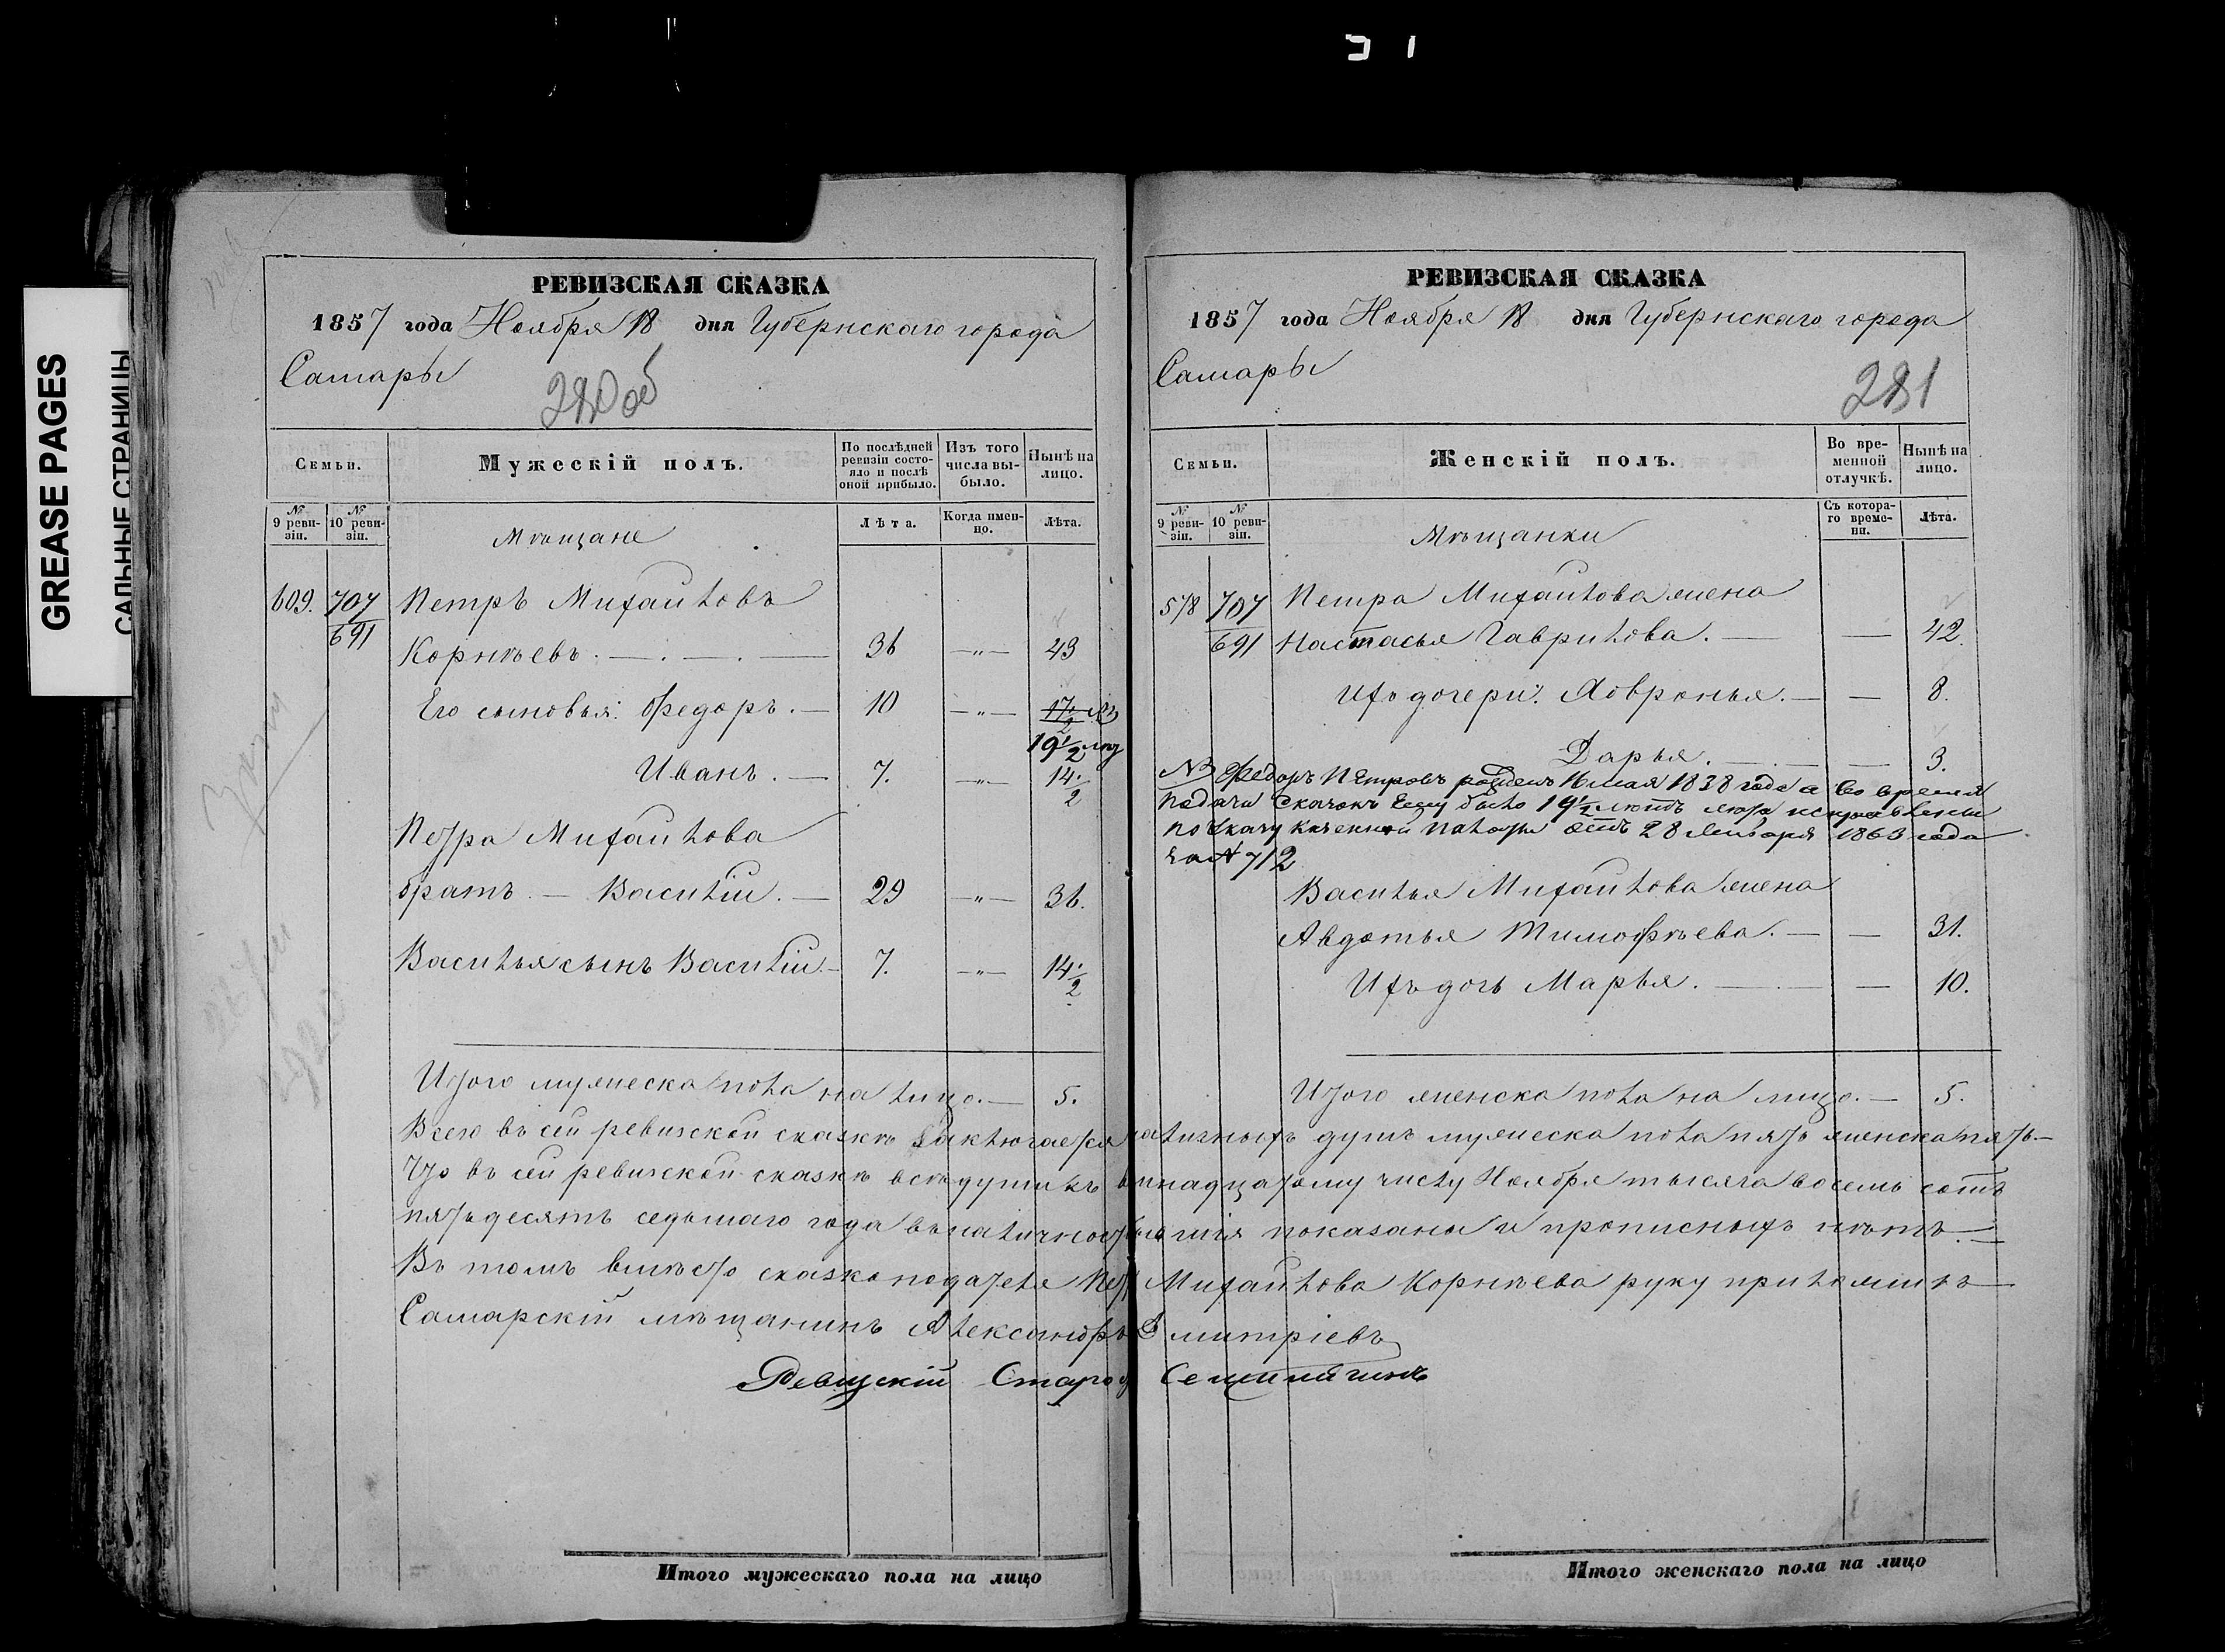 GREASE PAGES
САЛЬНЫЕ СТРАНИЦЫ
РЕВИЗСКАЯ СКАЗКА
1857 года Ноября 18 дня Губернскаго города
Самары
280 об
Семьи.
Мужескій полъ.
По послѣдней ревизіи состояло и послѣ оной прибыло.
Изъ того числа выбыло.
Нынѣ на лицо.
№ 9 ревизіи.
№ 10 ревизіи.
Мѣщане
Лѣта.
Когда именно.
Лѣта.
609. 707/691 Петръ Михайловъ
Корнѣевъ. — . — . — 36 —"— 43
Его сыновья: Федоръ. — 10 —"— 17 1/2
19 1/2
Иванъ. — 7. —"— 14 1/2
Петра Михайлова
братъ. — Василій. — 29 —"— 36.
Василья сынъ Василій. — 7. —"— 14 1/2
Итого мужеска пола на лицо. — 5.
РЕВИЗСКАЯ СКАЗКА
1857 года Ноября 18 дня Губернскаго города
Самары
281
Семьи.
Женскій полъ.
Во временной отлучкѣ.
Нынѣ на лицо.
№ 9 ревизіи.
№ 10 ревизіи.
Мѣщанки
Съ котораго времени.
Лѣта.
578 707/691 Петра Михайлова жена
Настасья Гаврилова. — — 42.
Ихъ дочери: Ховронья. — — 8.
Дарья. — — 3.
№ Федоръ Петровъ рожденъ 16 мая 1838 года а во время
подачи Сказокъ Ему было 19 1/2 лѣтъ лѣта исправлены
по Указу казенной палаты отъ 28 Января 1863 года
за № 712
Василья Михайлова жена
Авдотья Тимофѣева. — — 31.
Ихъ дочь Марья. — — 10.
Итого женска пола на лицо. — 5.
Всего въ сей ревизской сказкѣ заключается наличныхъ душъ мужеска пола пять женска пять. —
Что въ сей ревизской сказкѣ всѣ души къ осмнадцатому числу Ноября тысяча восемь сотъ
пятьдесятъ седьмаго года въ наличности показаны и прописныхъ нѣтъ. —
Въ томъ вмѣсто сказкоподателя Петра Михайлова Корнѣева руку приложилъ
Самарскій мѣщанинъ Александръ Дмитріевъ
Ревизскій Староста
Итого мужескаго пола на лицо
Итого женскаго пола на лицо